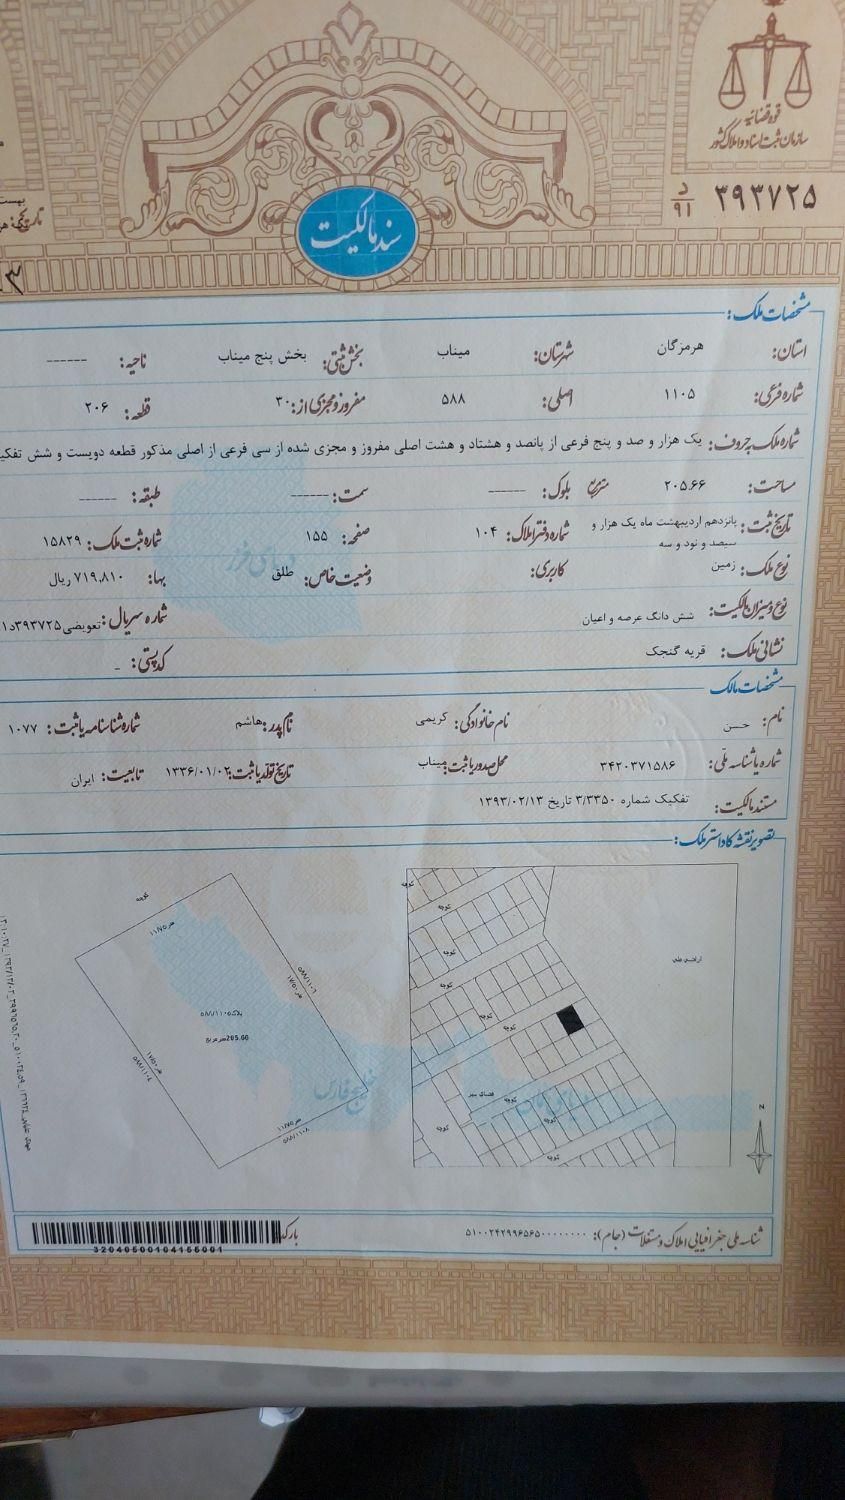 قوه قضائیه
سازمان ثبت اسناد و املاک کشور
۳۹۳۷۲۵ د ۹۱
سند مالکیت
مشخصات ملک:
استان: هرمزگان شهرستان: میناب بخش ثبتی: بخش پنج میناب ناحیه: ------
شماره فرعی: ۱۱۰۵ اصلی: ۵۸۸ مفروز و مجزی از: ۳۰ قطعه: ۲۰۶
شماره ملک بحروف: یک هزار و صد و پنج فرعی از پانصد و هشتاد و هشت اصلی مفروز و مجزی شده از سی فرعی از اصلی مذکور قطعه دویست و شش
مساحت: ۲۰۵.۶۶ مترمربع بلوک: ------ سمت: ------ طبقه: ------
تاریخ ثبت: پانزدهم اردیبهشت ماه یک هزار و سیصد و نود و سه شماره دفتر املاک: ۱۰۴ صفحه: ۱۵۵ شماره ثبت ملک: ۱۵۸۲۹
نوع ملک: زمین کاربری: وضعیت خاص: طلق بها: ۷۱۹,۸۱۰ ریال
نوع و میزان مالکیت: شش دانگ عرصه و اعیان شماره سریال: تعویضی۳۹۳۷۲۵د
نشانی ملک: قریه گنجک کد پستی: _
مشخصات مالک
نام: حسن نام خانوادگی: کریمی نام پدر: هاشم شماره شناسنامه یا ثبت: ۱۰۷۷
شماره یا شناسه ملّی: ۳۴۲۰۳۷۱۵۸۶ محل صدور یا ثبت: میناب تاریخ تولد یا ثبت: ۱۳۳۶/۰۱/۰۲ تابعیت: ایران
مستند مالکیت: تفکیک شماره ۳/۳۳۵۰ تاریخ ۱۳۹۳/۰۲/۱۳
تصویر نقشه کاداستر ملک:
کوچه
متر۱۱/۷۵
۵۸۸/۱۱۰۶
متر۱۷/۵۰
پلاک۵۸۸/۱۱۰۵
205.66مترمربع
متر۱۷/۵۰
۵۸۸/۱۱۰۴
متر۱۱/۷۵
۵۸۸/۱۱۰۸
کوچه
کوچه
کوچه
کوچه
کوچه
کوچه
کوچه
کوچه
کوچه
کوچه
فضای سبز
اراضی ملی
N
دریای خزر
خلیج فارس
دریای عمان
شناسه ملی جغرافیایی املاک و مستغلات (جام): ۵۱۰۰۲۴۲۹۹۶۵۶۵۰۰۰۰۰۰۰۰
بارکد:
32040500104155001